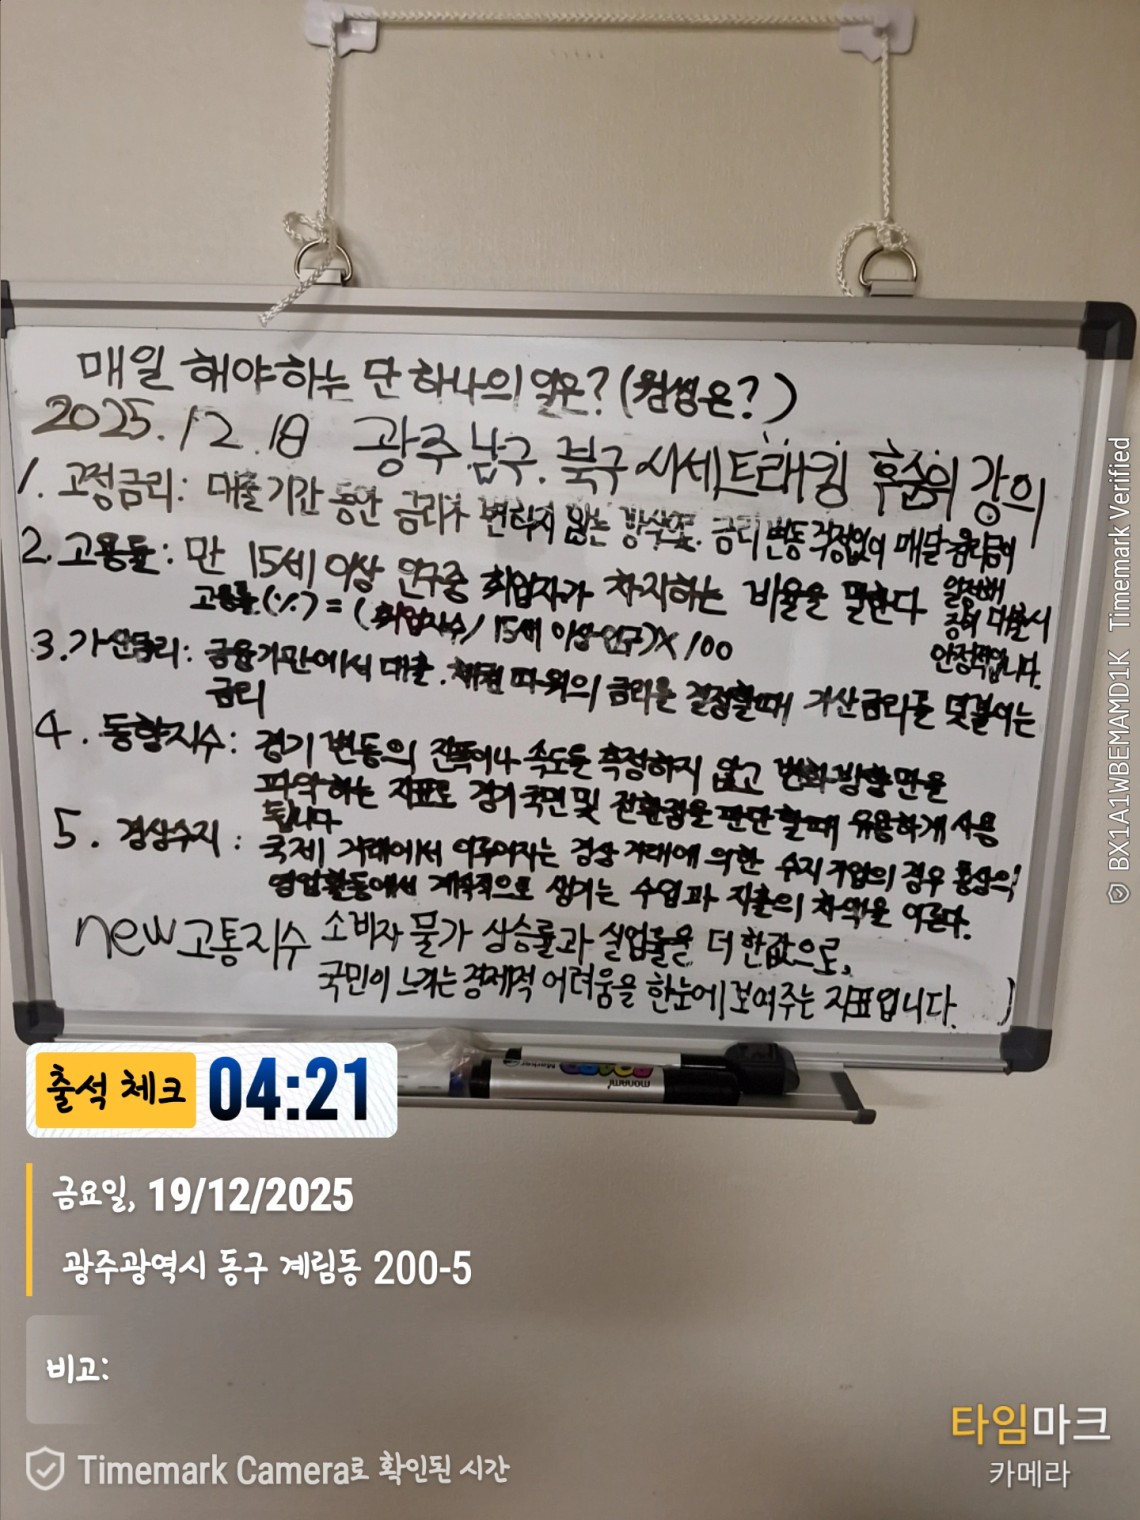 매일 해야하는 단 하나의 일은? (원씽은?)
2025.12.18 광주 남구.북구 시세트래킹 후순위 강의
1. 고정금리: 대출기간 동안 금리가 변하지 않는 방식으로. 금리변동 걱정없이 매달 원리금이
일정해
2. 고용률: 만 15세 이상 인구중 취업자가 차지하는 비율을 말한다
장기 대출시
고용률(%) = (취업자수/15세 이상 인구)X100
안정적입니다.
3. 가산금리: 금융기관에서 대출.채권 따위의 금리를 결정할때 가산금리를 덧붙이는
금리
4. 동향지수: 경기 변동의 진폭이나 속도를 측정하지 않고 변화방향만을
파악하는 지표로 경기국면및 전환점을 판단할때 유용하게 사용
됩니다
5. 경상수지: 국제 거래에서 이루어지는 경상 거래에 의한 수지 기업의 경우 통상의
영업활동에서 계속적으로 생기는 수입과 지출의 차액을 이른다.
new 고통지수 소비자 물가 상승률과 실업률을 더한값으로,
국민이 느끼는 경제적 어려움을 한눈에 보여주는 지표입니다.
monami
Marker
출석 체크 04:21
금요일, 19/12/2025
광주광역시 동구 계림동 200-5
비고:
Timemark Camera로 확인된 시간
타임마크
카메라
BX1A1WBEMAMD1K Timemark Verified